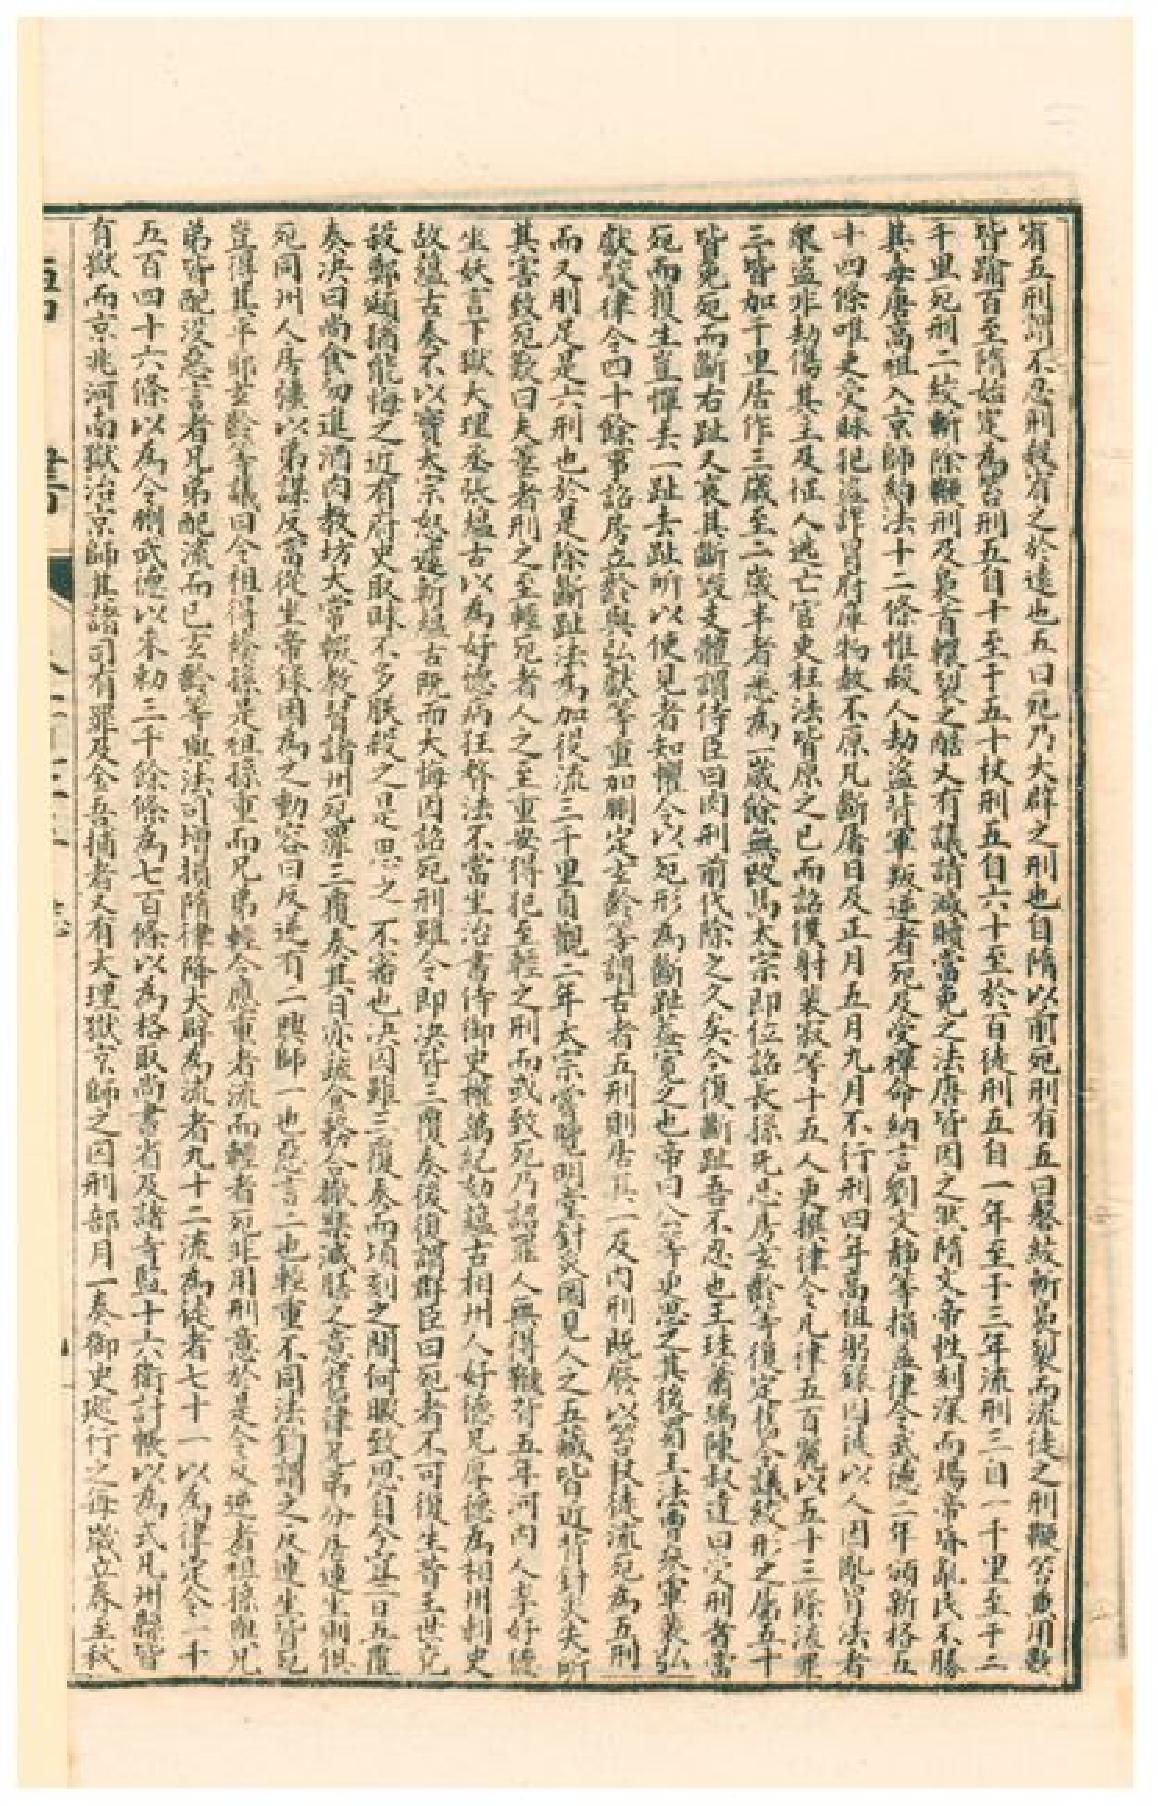 宥五刑謂不忍刑殺宥之於遠也五曰死乃大辟之刑也自隋以前死刑有五曰罄絞斬梟裂而流徒之刑鞭笞兼用數
皆踰百至隋始定為笞刑五自十至于五十杖刑五自六十至於百徒刑五自一年至于三年流刑三自一千里至于二
千里死刑二絞斬除鞭刑及梟首轘裂之酷又有議請減贖當免之法唐皆因之然隋文帝性刻深而煬帝昏亂民不勝
其毒唐高祖入京師約法十二條惟殺人劫盜背軍叛逆者死及受禪命納言劉文靜等損益律令武德二年頒新格五
十四條唯吏受賕犯盜詐冒府庫物赦不原凡斷屠日及正月五月九月不行刑四年高祖躬錄囚徒以人因亂冒法者
眾盜非劫傷其主及征人逃亡官吏枉法皆原之已而詔僕射裴寂等十五人更撰律令凡律五百麗以五十三條流罪
三皆加千里居作三歲至二歲半者悉為一歲餘無改焉太宗即位詔長孫无忌房玄齡等復定舊令議絞刑之屬五十
皆免死而斷右趾又哀其斷毀支體謂侍臣曰肉刑前代除之久矣今復斷趾吾不忍也王珪蕭瑀陳叔達曰受刑者當
死而獲生豈憚去一趾去趾所以使見者知懼今以死形為斷趾蓋寬之也帝曰公等更思之其後蜀王法曹參軍裴弘
獻駮律令四十餘事詔房玄齡與弘獻等重加刪定玄齡等謂古者五刑刖居其一及肉刑既廢以笞杖徒流死為五刑
而又刖足是六刑也於是除斷趾法為加役流三千里自觀二年太宗嘗覽明堂針灸圖見人之五藏皆近背針灸失所
其害致死歎曰夫箠者刑之至輕死者人之至重安得犯至輕之刑而或致死乃詔罪人無得鞭背五年河內人李好德
坐妖言下獄大理丞張蘊古以為好德病狂瞀法不當坐治書侍御史權萬紀劾蘊古相州人好德兄厚德為相州刺史
故蘊古奏不以實太宗怒遽斬蘊古既而大悔因詔死刑雖令即決皆三覆奏後復謂群臣曰死者不可復生昔王世充
殺鄭頲猶能悔之近有府史取賕不多朕殺之是思之不審也決囚雖三復奏而頃刻之間何暇致思自今宜二日五覆
奏決日尚食勿進酒肉教坊太常輟教習諸州死罪三覆奏其日亦蔬食務合撤樂減膳之意舊律兄弟分居連坐則俱
死同州人房彊以弟謀反當從坐帝錄囚為之動容曰反逆有二興師一也惡言二也輕重不同法鈞謂之反連坐皆死
豈得其平邪玄齡等議曰今祖得蔭孫是祖孫重而兄弟輕今應重者流而輕者死非用刑意於是令反逆者祖孫與兄
弟皆配沒惡言者兄弟配流而已玄齡等與法司增損隋律降大辟為流者九十二流為徒者七十一以為律定令一千
五百四十六條以為令刪武德以來勑三千餘條為七百條以為格取尚書省及諸寺監十六衛計帳以為式凡州縣皆
有獄而京兆河南獄治京師其諸司有罪及金吾捕者又有大理獄京師之囚刑部月一奏御史巡行之每歲立春至秋